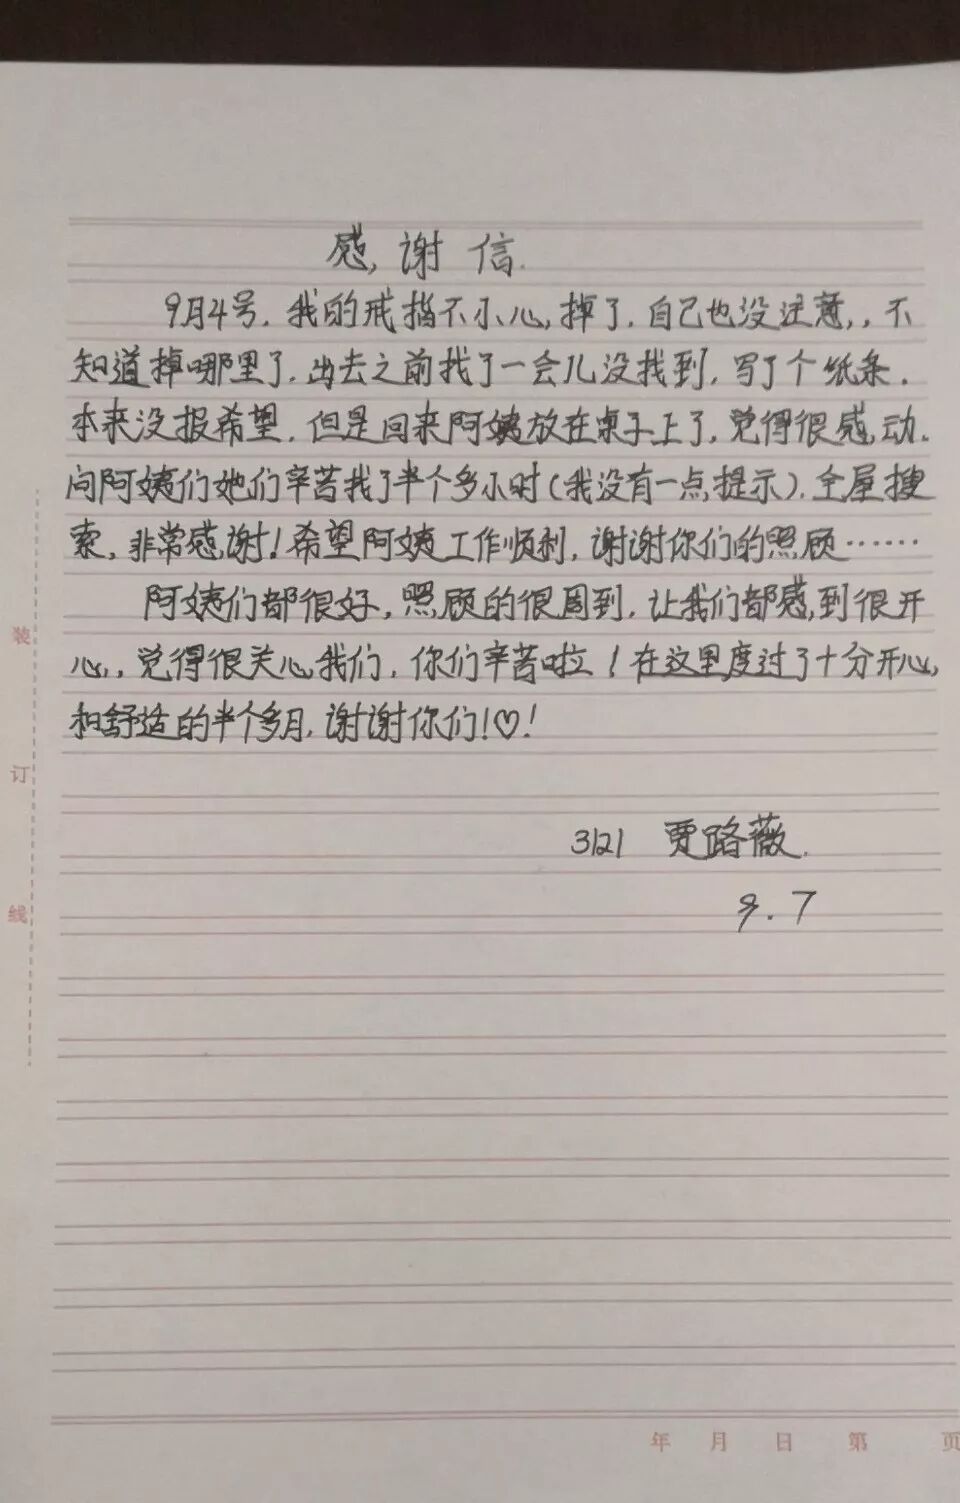 感谢信.
9月4号.我的戒指不小心掉了.自己也没注意,不
知道掉哪里了.出去之前找了一会儿没找到,写了个纸条.
本来没报希望.但是回来阿姨放在桌子上了,觉得很感动.
问阿姨们她们辛苦找了半个多小时(我没有一点提示).全屋搜
索,非常感谢!希望阿姨工作顺利,谢谢你们的照顾……
阿姨们都很好,照顾的很周到,让我们都感到很开
心,觉得很关心我们,你们辛苦啦!在这里度过了十分开心
和舒适的半个多月,谢谢你们!♡!
3121 贾路薇.
9.7
装
订
线
年 月 日 第 页